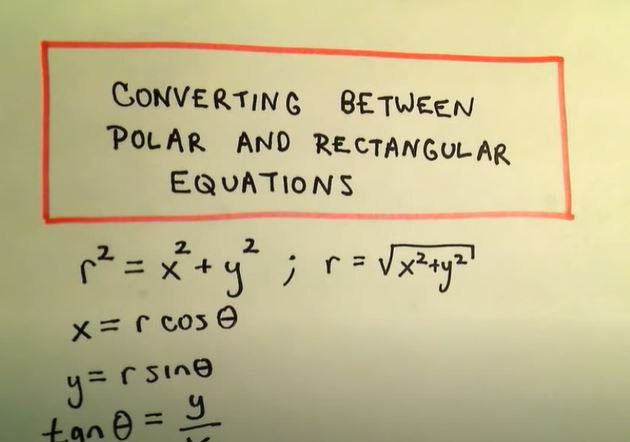 CONVERTING BETWEEN
POLAR AND RECTANGULAR
EQUATIONS
r² = x² + y² ; r = √x²+y²
x = r cos θ
y = r sin θ
tan θ = y